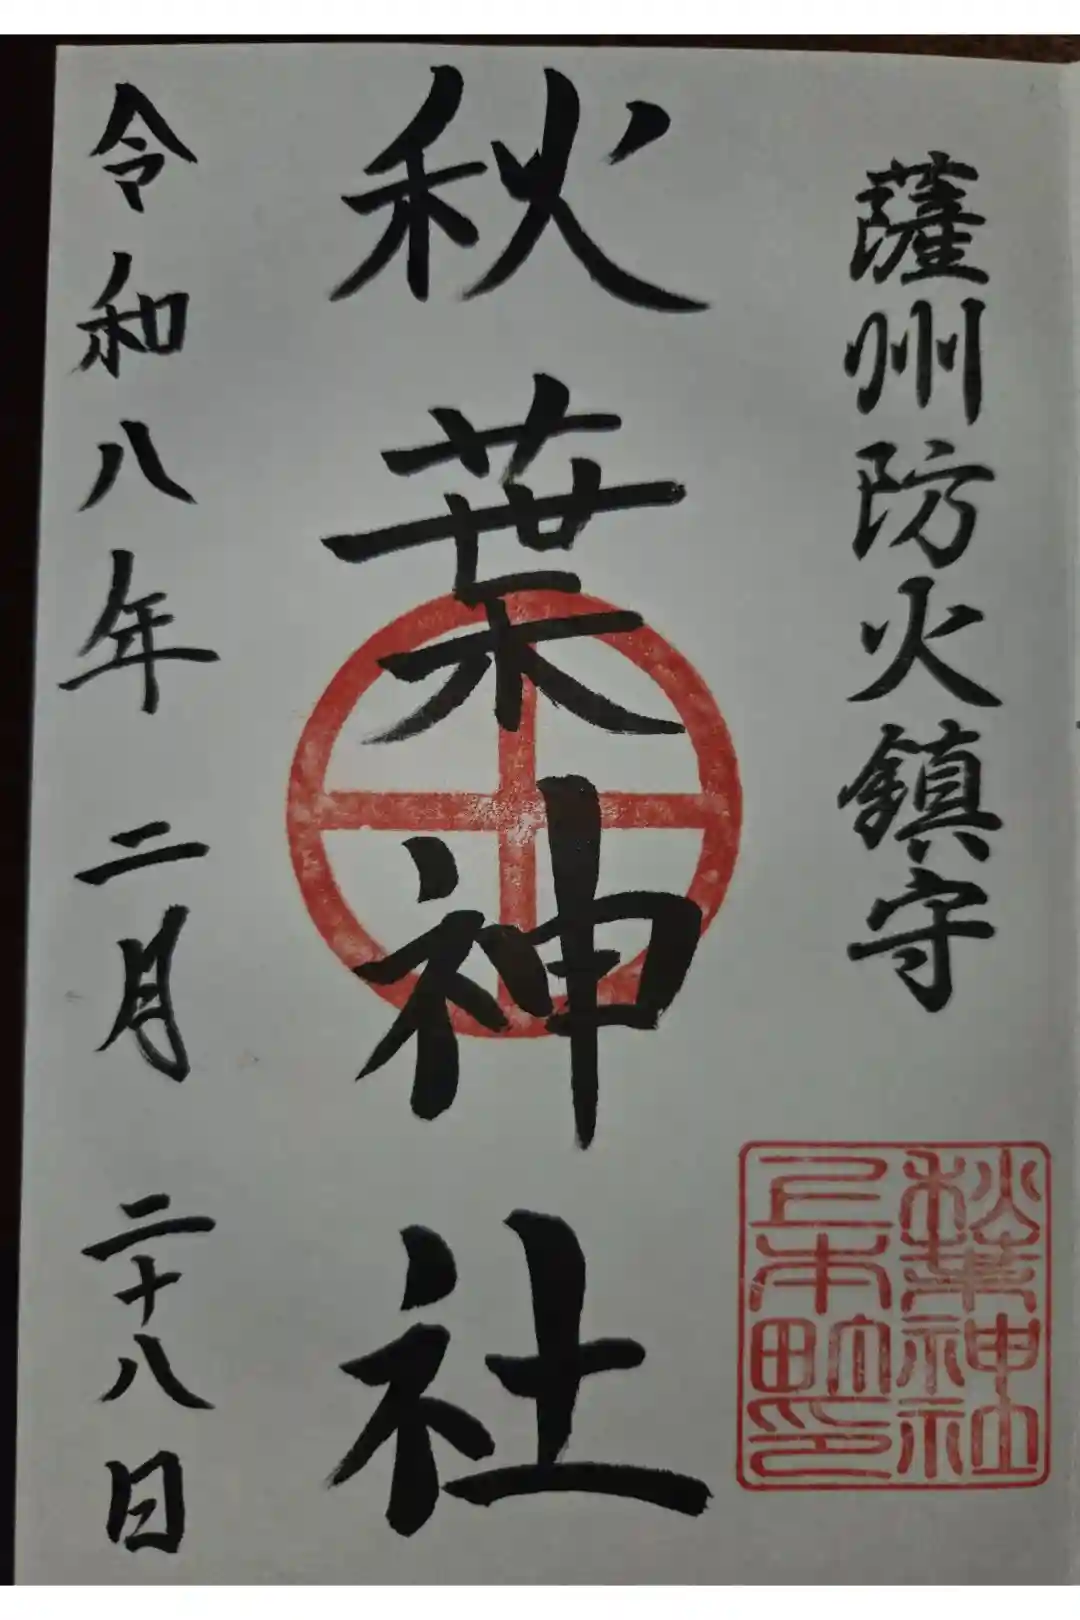 薩州防火鎮守
秋葉神社
令和八年 二月 二十八日
秋葉神社
上本町印